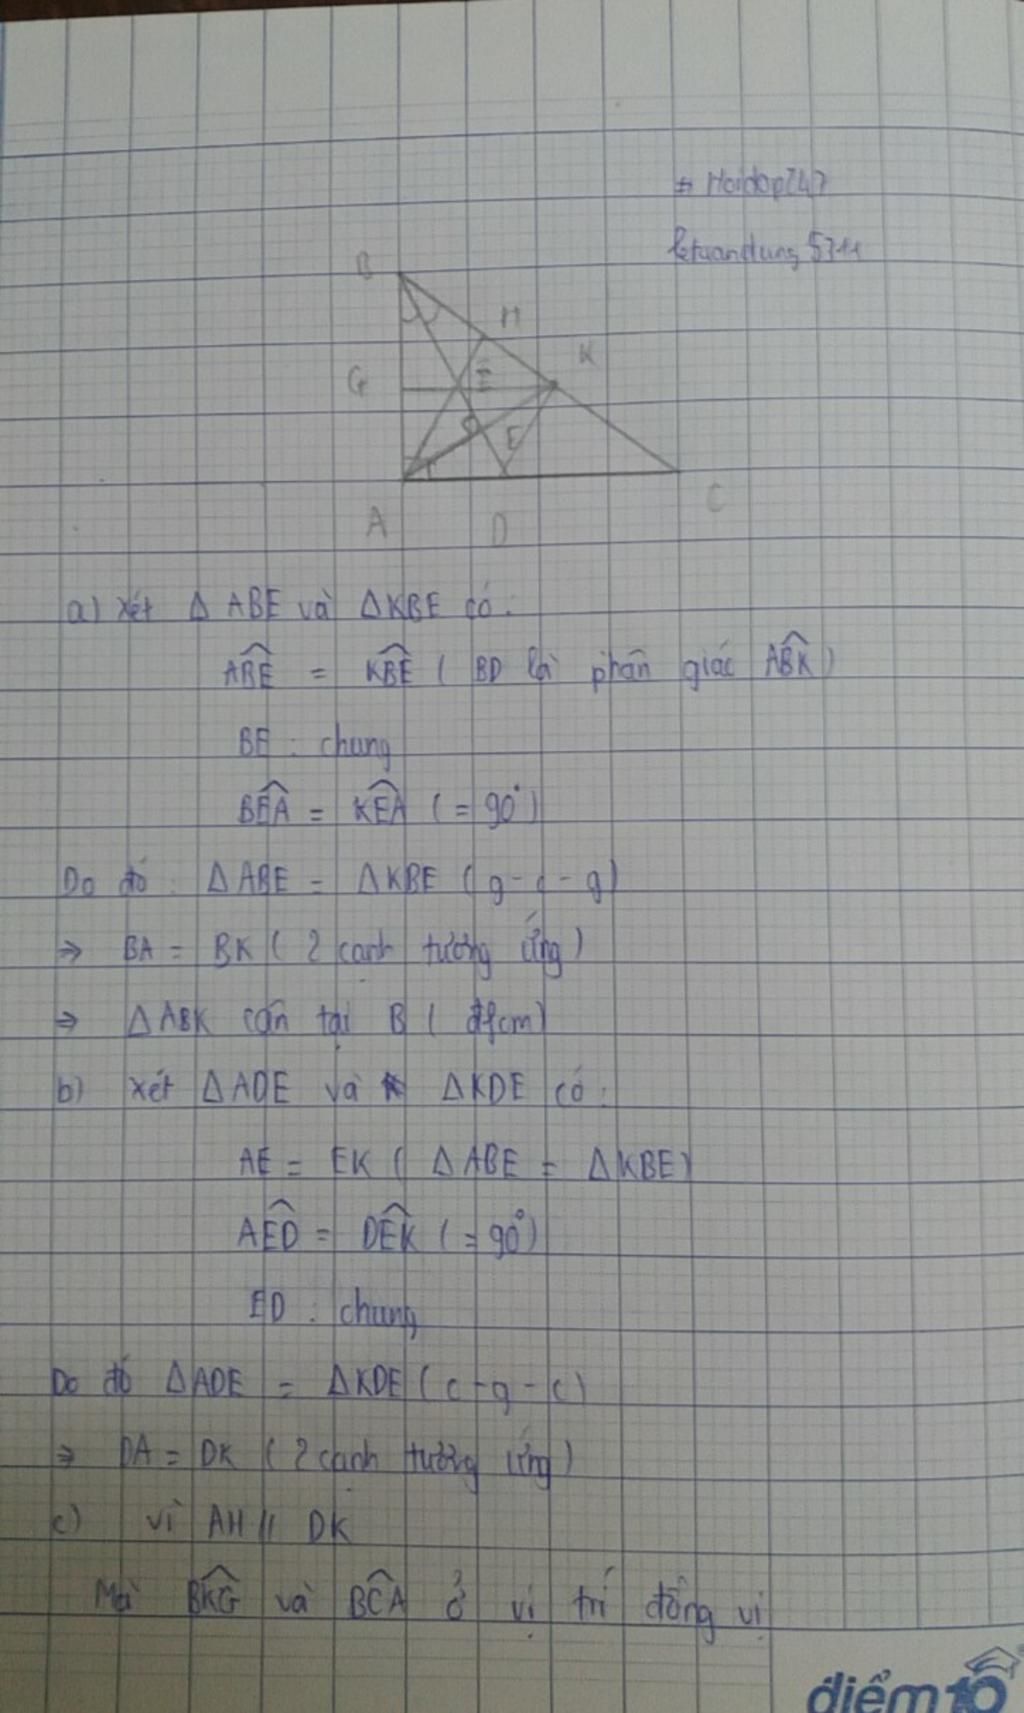 # Hoidap247
letuandung5711
B
H
K
G
I
E
A
D
C
a) Xét Δ ABE và ΔKBE có:
ABE = KBE ( BD là phân giác ABK )
BE : chung
BEA = KEA ( = 90°)
Do đó: Δ ABE = ΔKBE ( g - c - g )
⇒ BA = BK ( 2 cạnh tương ứng )
⇒ ΔABK cân tại B ( đfcm )
b) Xét ΔADE và ΔKDE có:
AE = EK ( Δ ABE = ΔKBE )
AED = DEK ( = 90° )
ED : chung
Do đó ΔADE = ΔKDE ( c - g - c )
⇒ DA = DK ( 2 cạnh tương ứng )
c) vì AH // DK
Mà BKG và BCA ở vị trí đồng vị
điểm 10